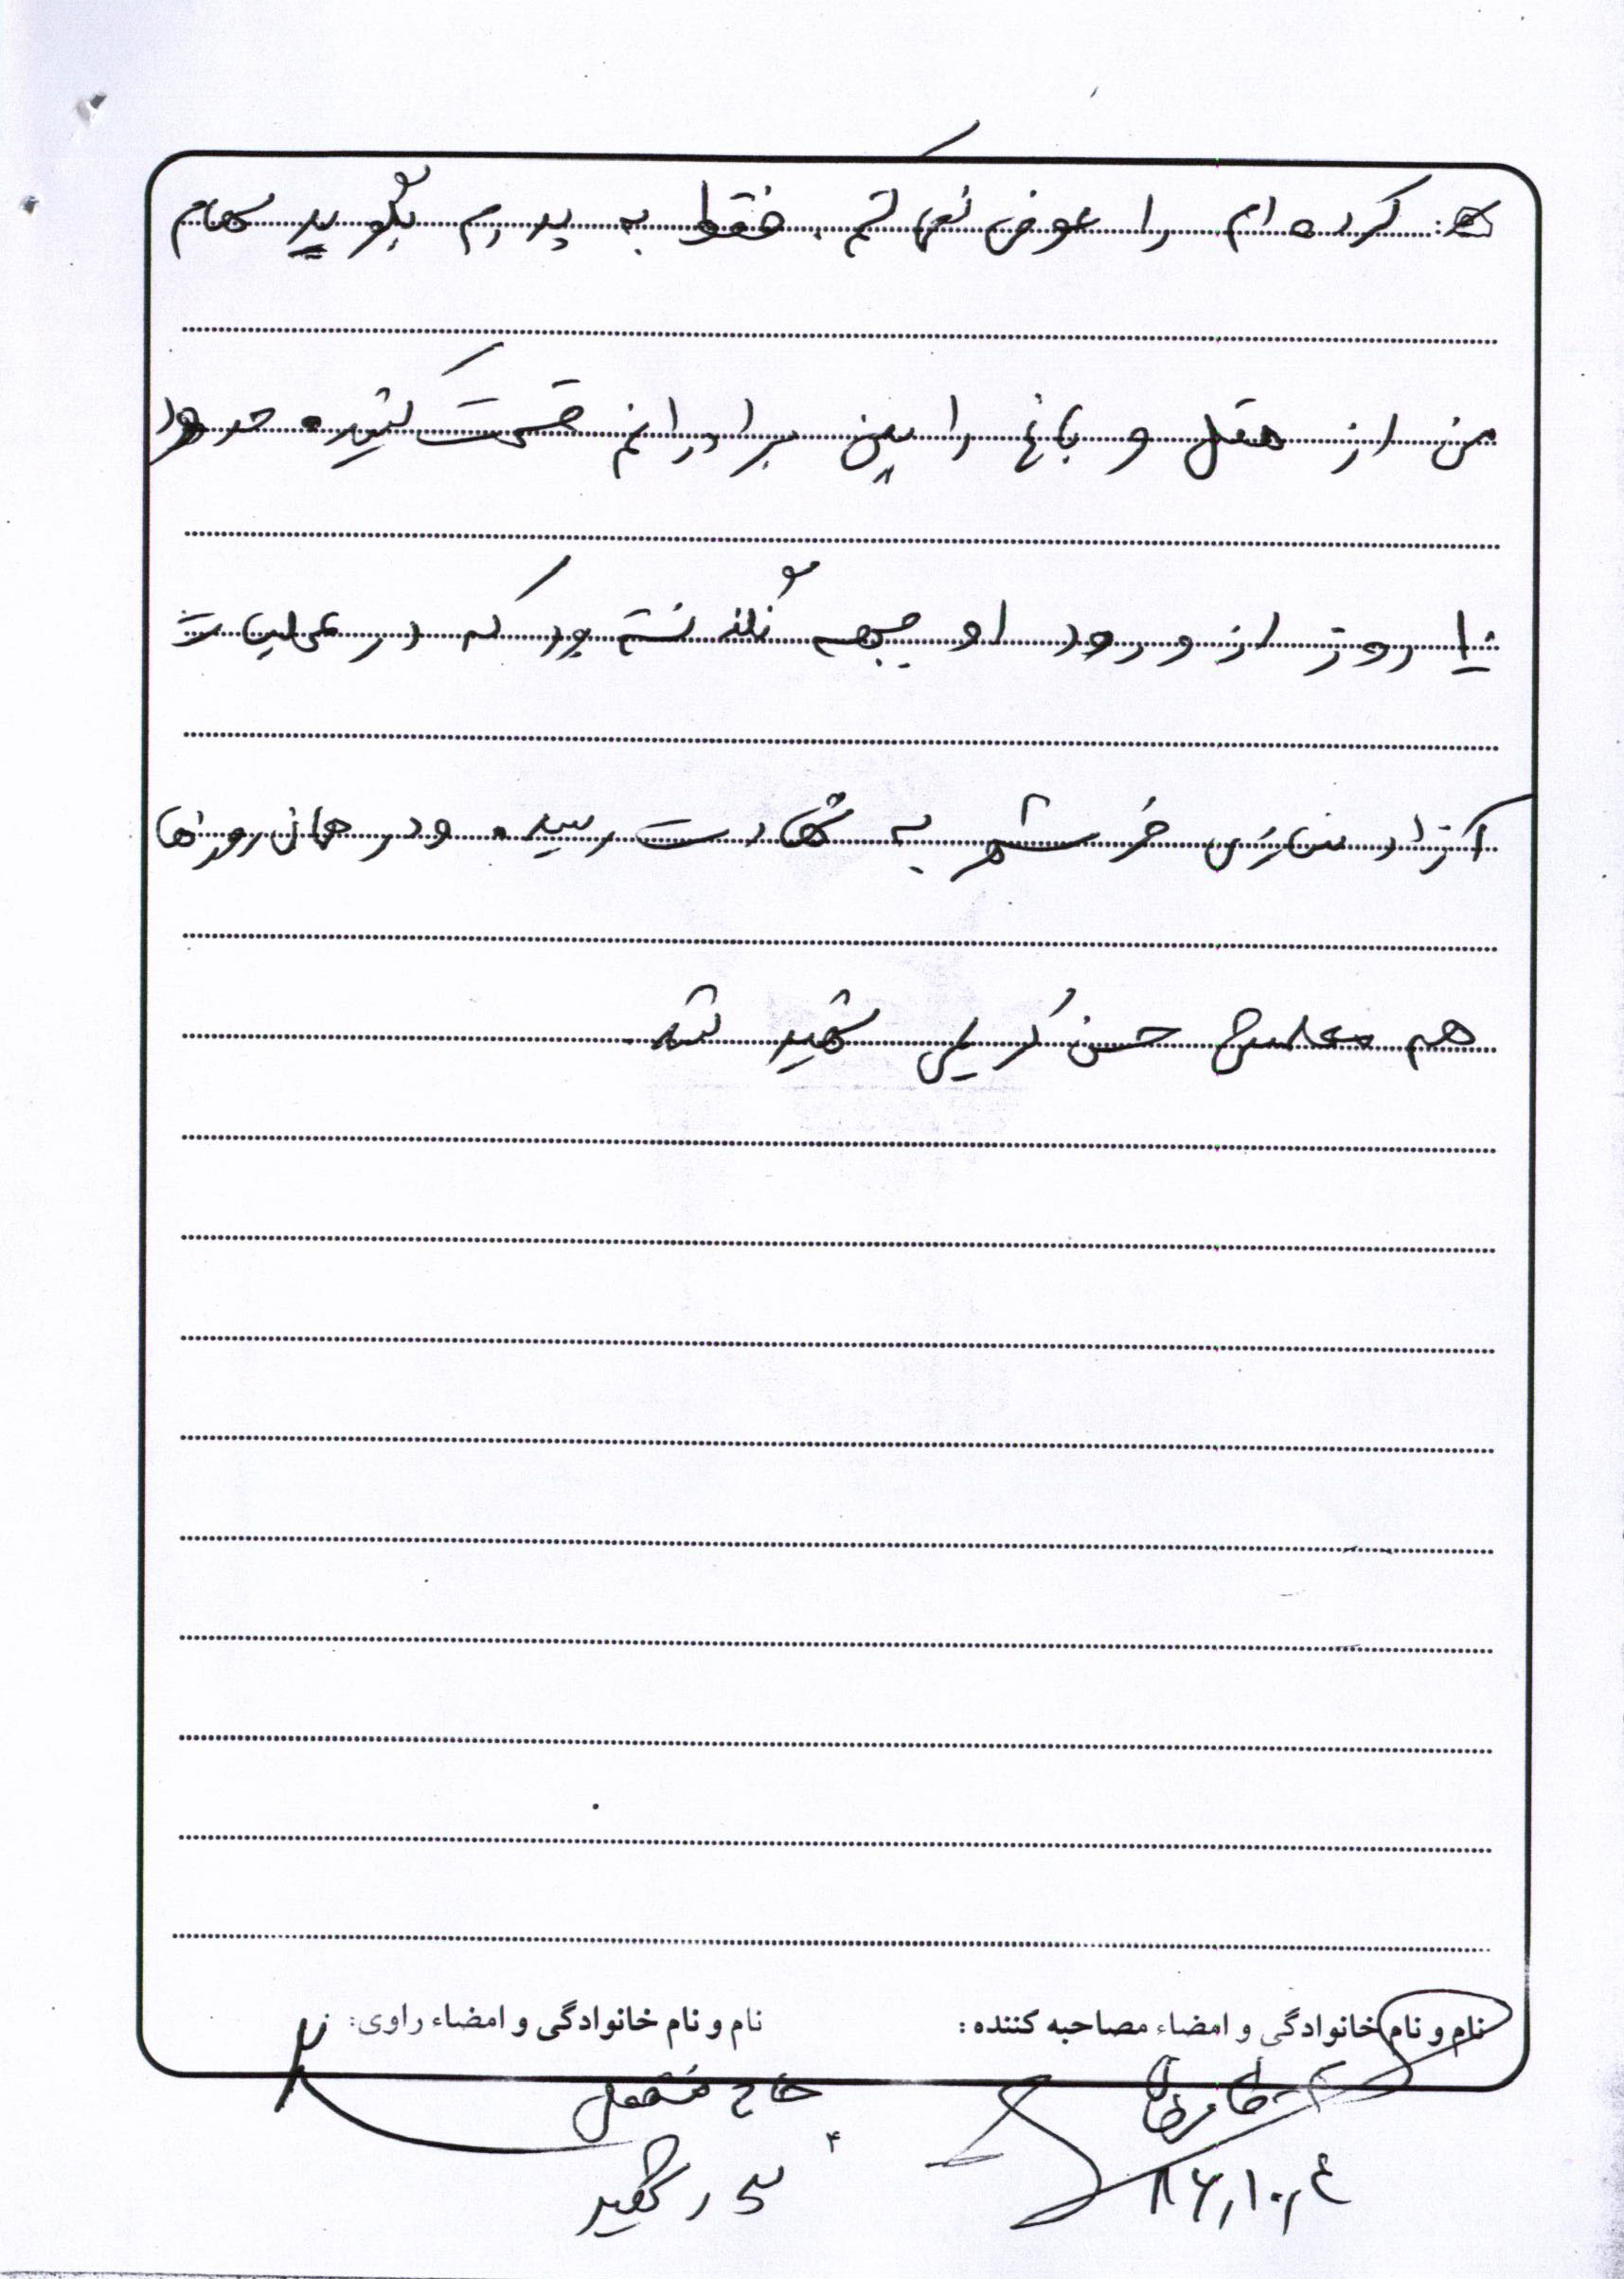 کرده ام را عوض نمی کنم. فقط به پدرم بگویید سهام
من از هتل و باغ را بین برادرانم قسمت کنید. حدود
روز از ورود او جبهه نگذشته بود که در عملیات
آزادسازی خرمشهر به شهادت رسید. و در همان روزها
هم حسن کریمی شهید شد.
نام و نام خانوادگی و امضاء مصاحبه کننده:
نام و نام خانوادگی و امضاء راوی:
۴
پدر شهید
۸۶,۱۰,۴